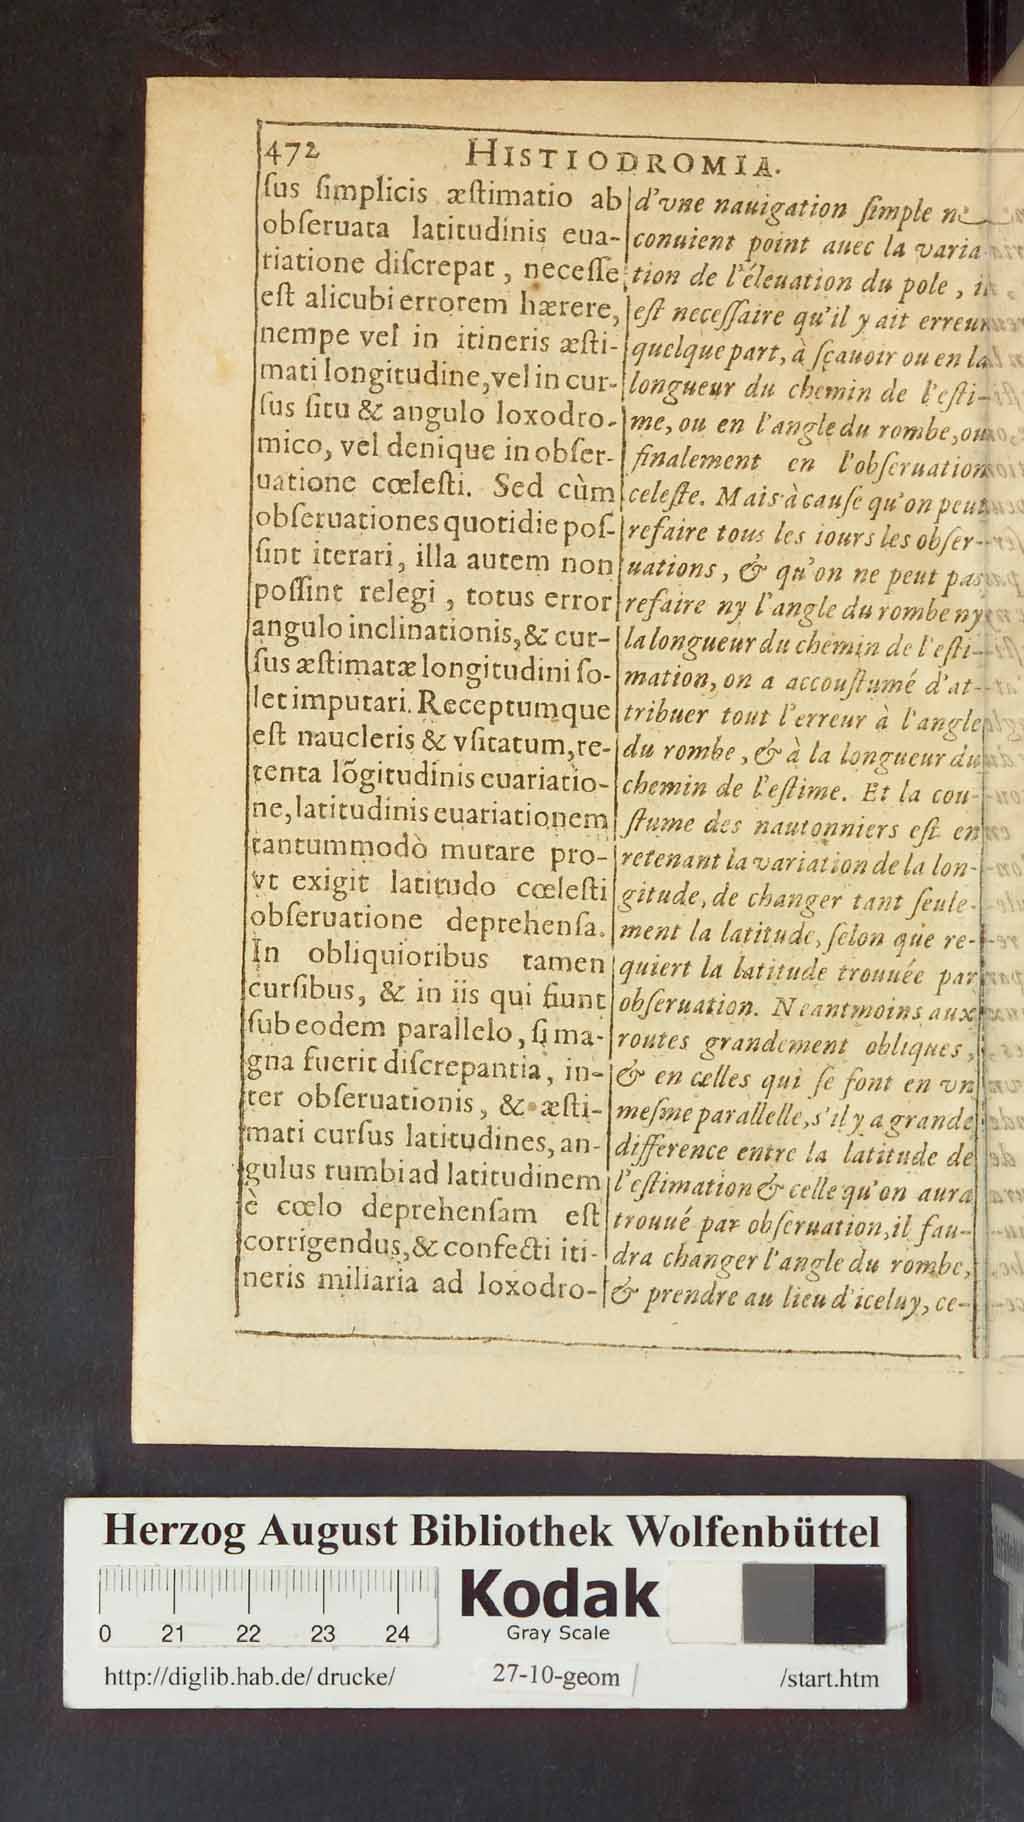 472 HISTIODROMIA.
ſus ſimplicis æſtimatio ab
obſeruata latitudinis eua-
riatione diſcrepat, neceſſe
eſt alicubi errorem hærere,
nempe vel in itineris æſti-
mati longitudine, vel in cur-
ſus ſitu & angulo loxodro-
mico, vel denique in obſer-
uatione cœleſti. Sed cùm
obſeruationes quotidie poſ-
ſint iterari, illa autem non
poſſint relegi, totus error
angulo inclinationis, & cur-
ſus æſtimatæ longitudini ſo-
let imputari. Receptumque
eſt naucleris & vſitatum, re-
tenta lõgitudinis euariatio-
ne, latitudinis euariationem
tantummodò mutare pro-
vt exigit latitudo cœleſti
obſeruatione deprehenſa.
In obliquioribus tamen
curſibus, & in iis qui fiunt
ſub eodem parallelo, ſi ma-
gna fuerit diſcrepantia, in-
ter obſeruationis, & æſti-
mati curſus latitudines, an-
gulus rumbi ad latitudinem
è cœlo deprehenſam eſt
corrigendus, & confecti iti-
neris miliaria ad loxodro-
d'vne nauigation ſimple ne
conuient point auec la varia
tion de l'éleuation du pole, il
eſt neceſſaire qu'il y ait erreur
quelque part, à ſçauoir ou en la
longueur du chemin de l'eſti-
me, ou en l'angle du rombe, ou
finalement en l'obſeruation
celeſte. Mais à cauſe qu'on peut
refaire tous les iours les obſer-
uations, & qu'on ne peut pas
refaire ny l'angle du rombe ny
la longueur du chemin de l'eſti-
mation, on a accouſtumé d'at-
tribuer tout l'erreur à l'angle
du rombe, & à la longueur du
chemin de l'eſtime. Et la cou-
ſtume des nautonniers eſt en
retenant la variation de la lon-
gitude, de changer tant ſeule-
ment la latitude, ſelon que re-
quiert la latitude trouuée par
obſeruation. Neantmoins aux
routes grandement obliques,
& en celles qui ſe font en vn
meſme parallelle, s'il y a grande
difference entre la latitude de
l'eſtimation & celle qu'on aura
trouué par obſeruation, il fau-
dra changer l'angle du rombe,
& prendre au lieu d'iceluy, ce-
Herzog August Bibliothek Wolfenbüttel
0 21 22 23 24
Kodak
Gray Scale
http://diglib.hab.de/ drucke/ 27-10-geom /start.htm